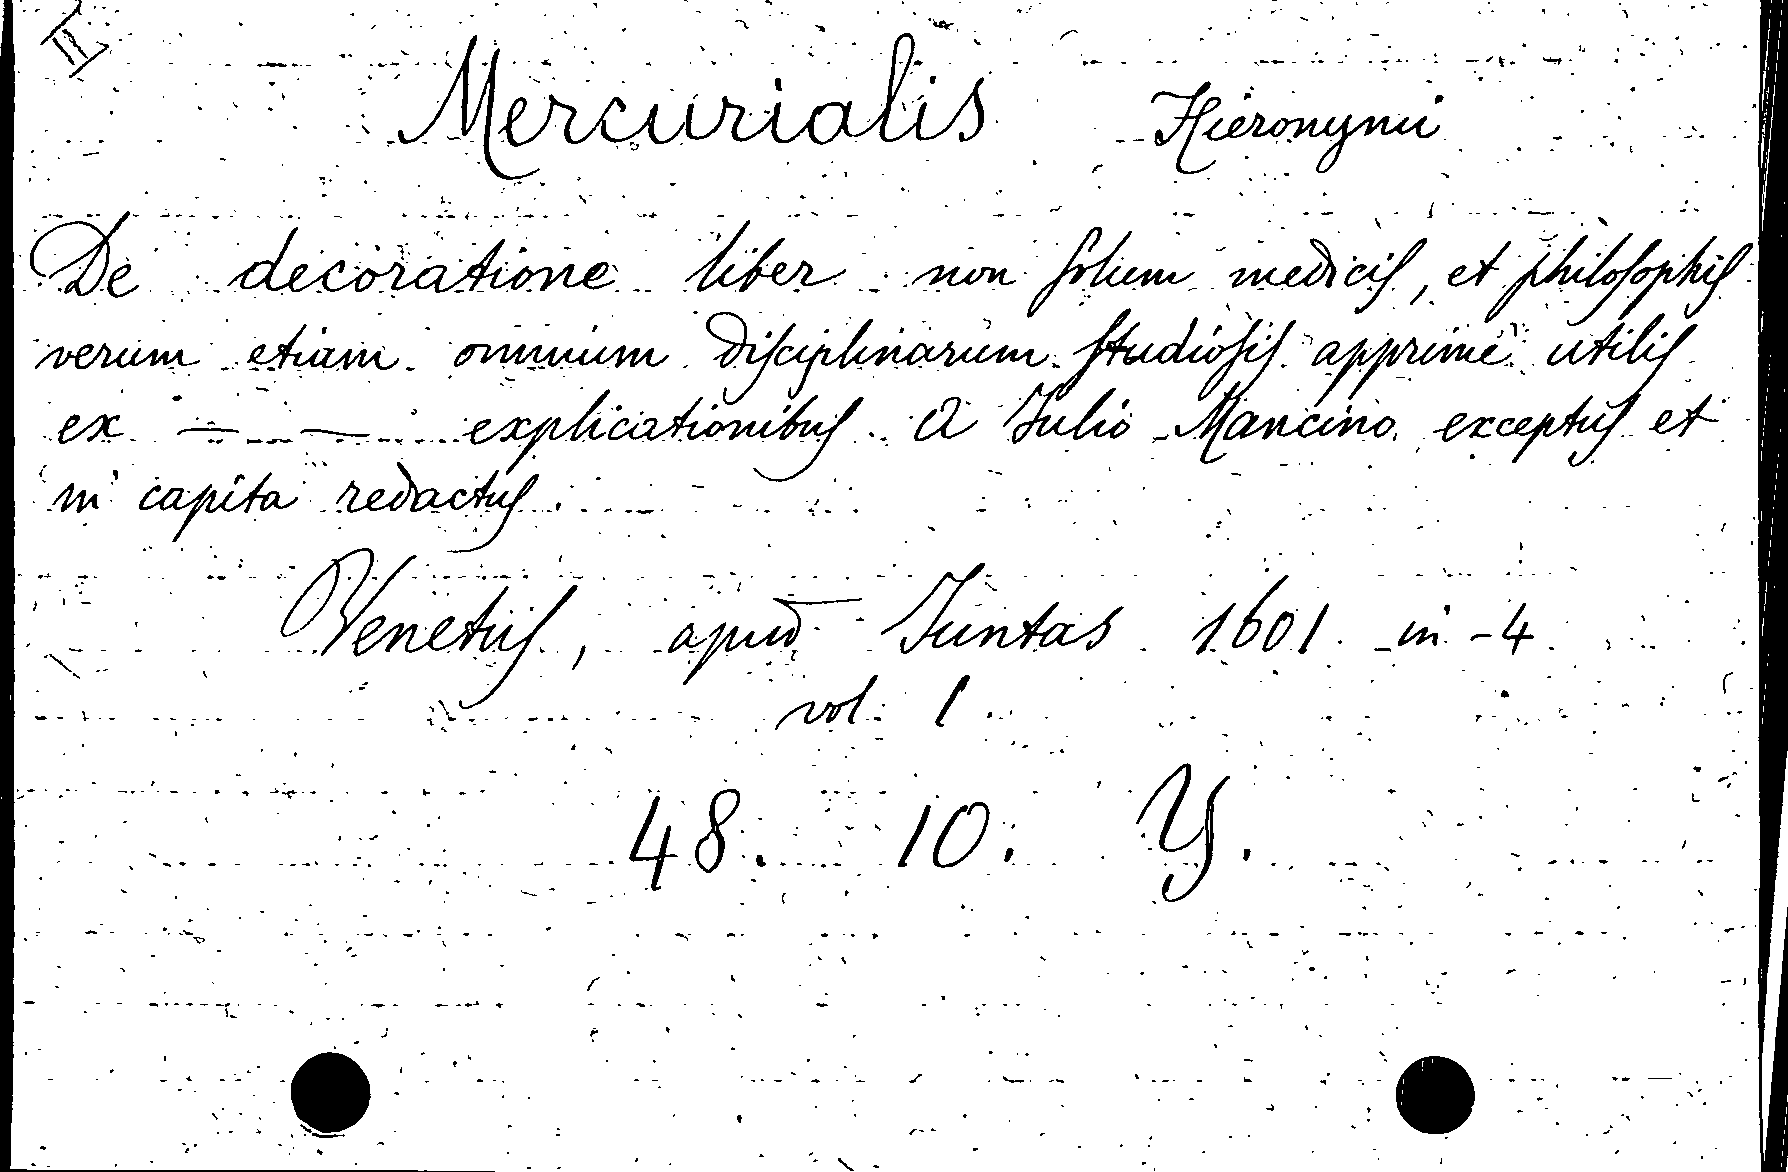 II
Mercurialis Hieronymi
De decoratione liber non solum medicis, et philosophis
verum etiam omnium disciplinarum studiosis apprime utilis
ex — — explicationibus a Julio Mancino exceptus et
in capita redactus
Venetiis, apud Juntas 1601 in-4
vol. 1
48. 10. Y.